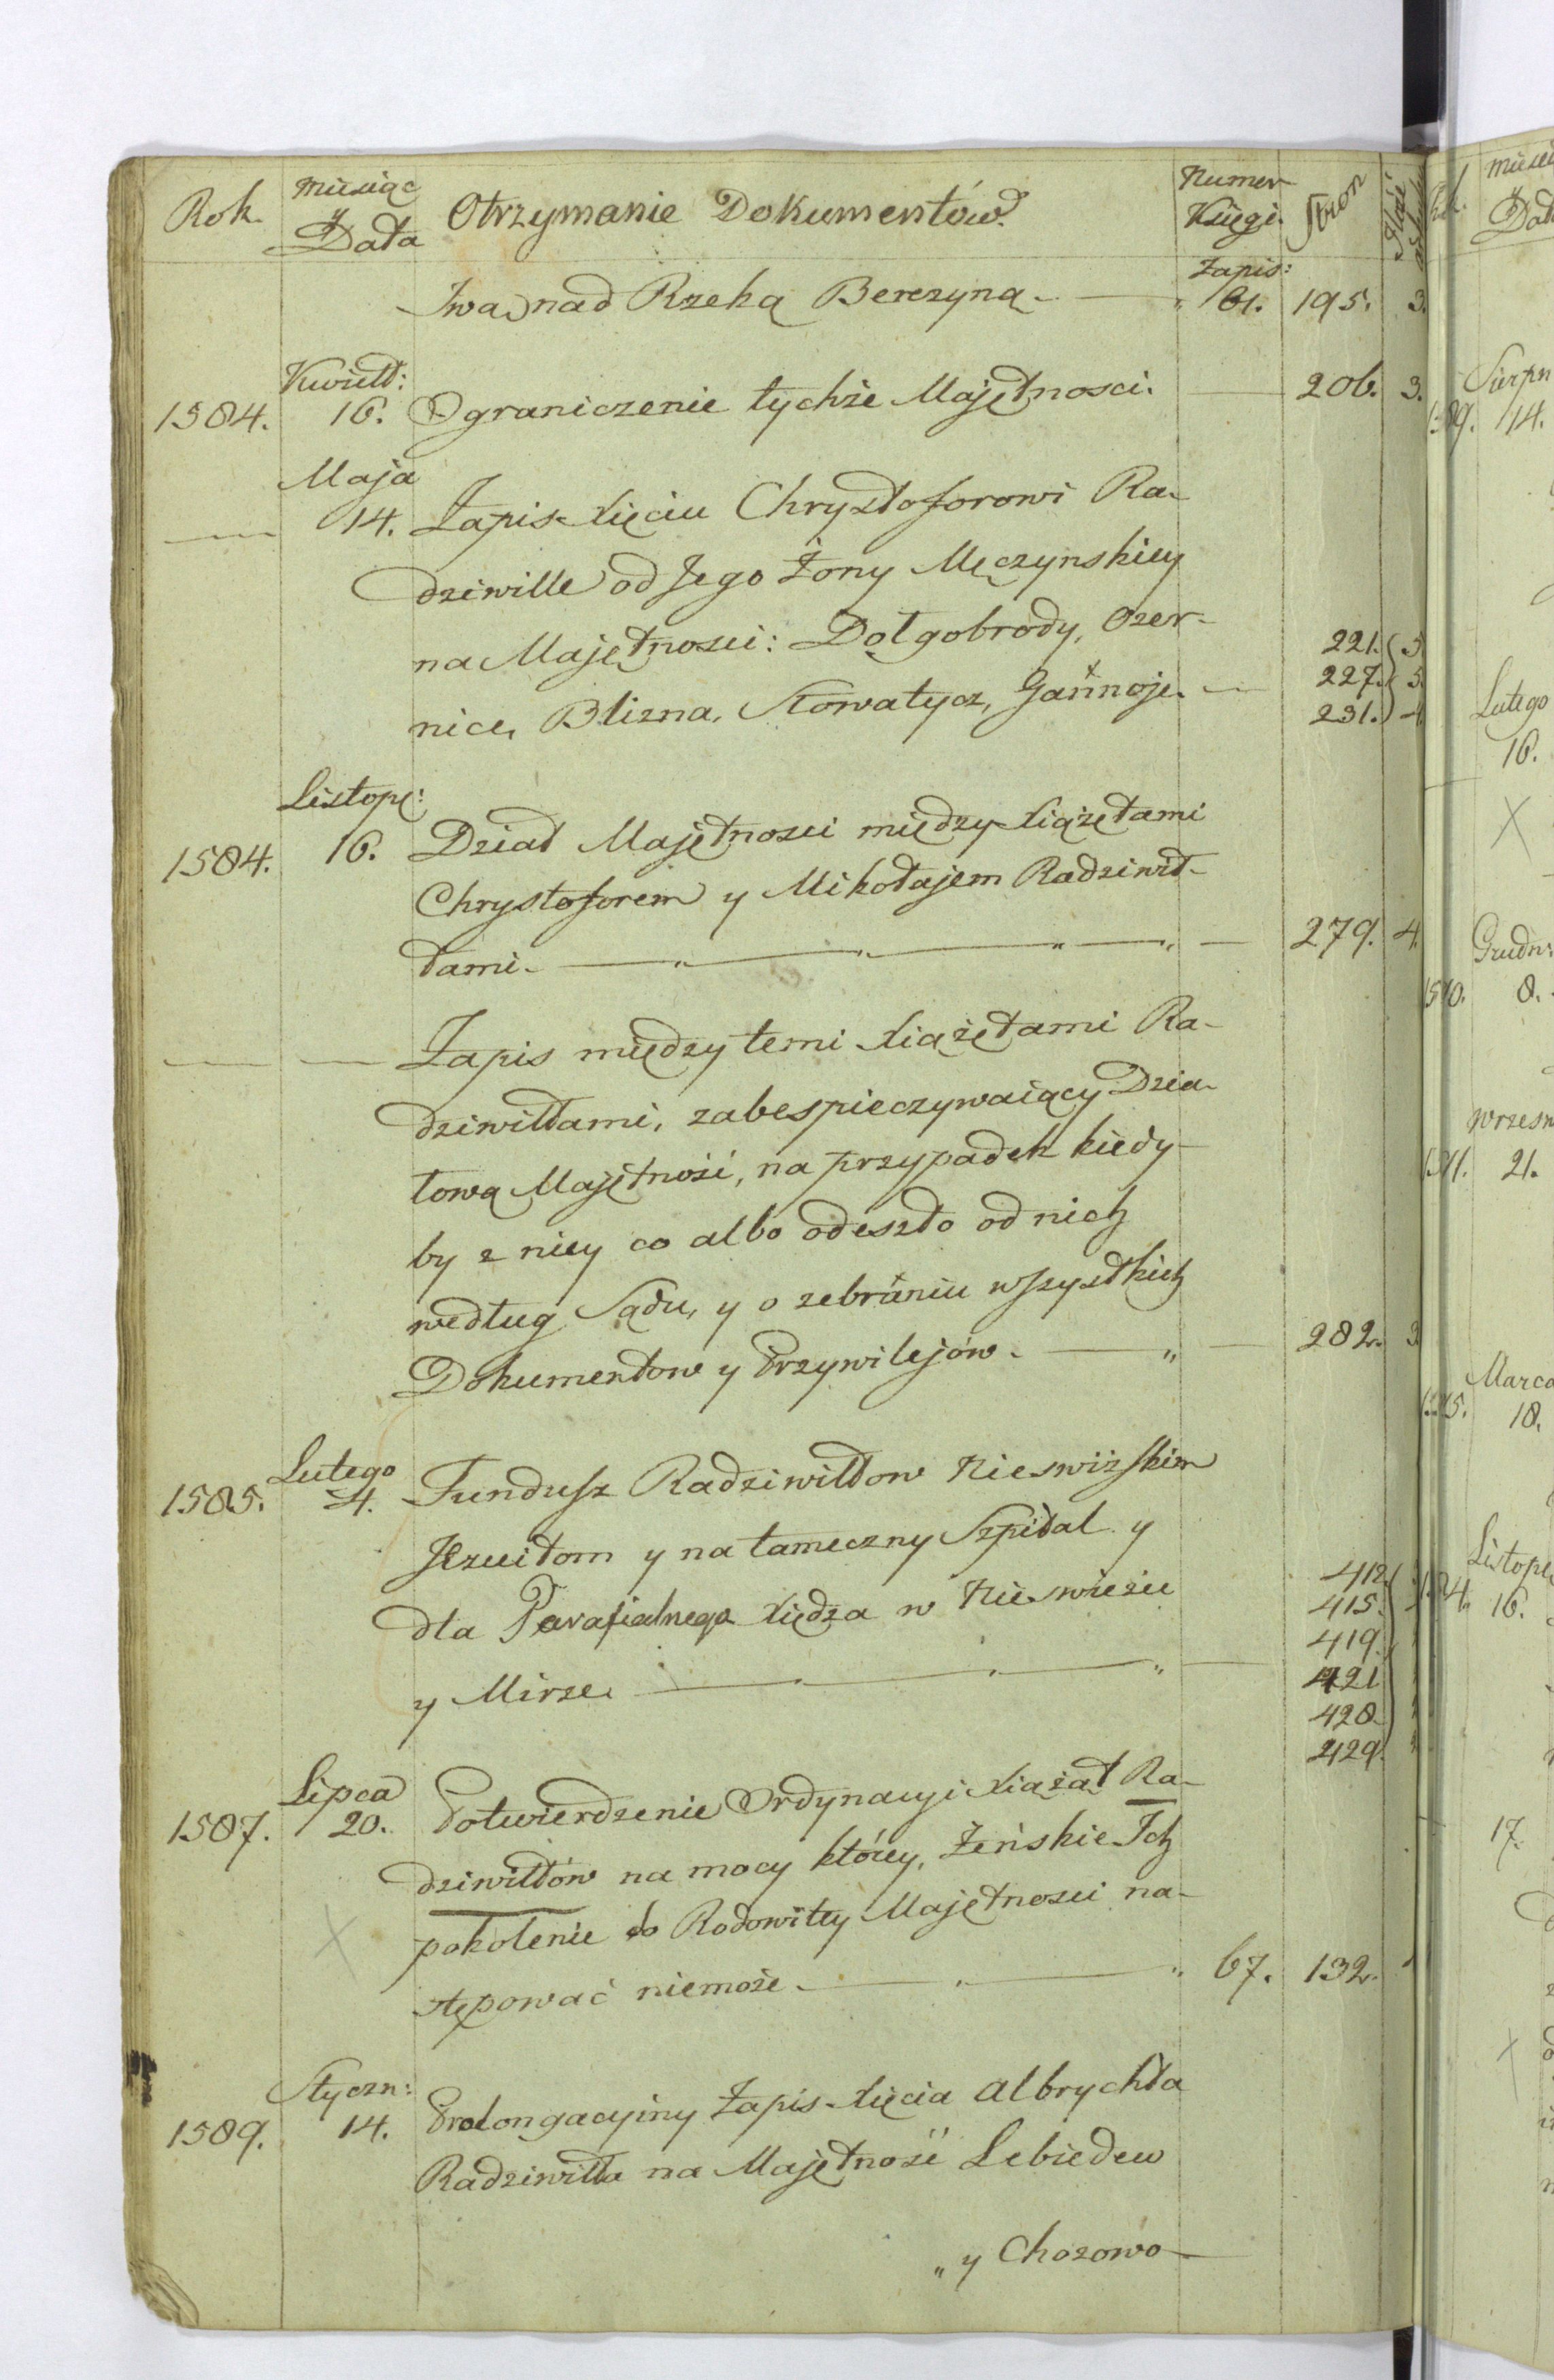 Rok. Miesiąc Data Otrzymanie Dokumentów. Numer Księgi. Stron
Zapis:
Iwa, nad Rzeką Berezyną. 61. 195. 3.
Kwiett:
1584. 16. Ograniczenie tychże Majętnosci. 206. 3.
Maja
14. Zapis Xięciu Chrysztoforowi Ra-
dziwille od Jego Żony Męczynskiey
na Majętnosci: Dołgobrody, Ozer- 221. 3
nice, Blizna, Słowatycz, 227. 5.
231. 4
Listop:
1584. 16. Dział Majętnosci między Xiążętami
Chrysztoforem y Mikołajem Radziwił-
łami. 279. 4.
Zapis między temi Xiążętami Ra-
dziwiłłami, zabespieczywaiący Dzia-
łową Majętność, na przypadek kiedy-
by z niey co albo odeszło od nich
według Sądu, y o zebraniu wszystkich
Dokumentow y Przywilejów. 282. 3
Lutego
1585. 4. Fundusz Radziwiłłow Nieswizskim
Jezuitom y na tameczny Szpital y 412.
dla Parafialnego Xiędza w Nieswieżu 415.
419.
y Mirze. 421
428.
429.
Lipca
1587. 20. Potwierdzenie Ordynacyi Xiążąt Ra-
dziwiłłów na mocy którey, Żeńskie Ich
pokolenie do Rodowitey Majętnosci na-
stępować niemoże. 67. 132.
Styczn:
1589. 14. Prolongacyjny Zapis Xięcia Albrychta
Radziwiłła na Majętność Lebiedew
„ y Chozowo
Miesi
Data
Sierpn
14.
Lutego
16.
Grudn:
8.
Wrzesn
21.
Marca
18.
Listop
16.
17.